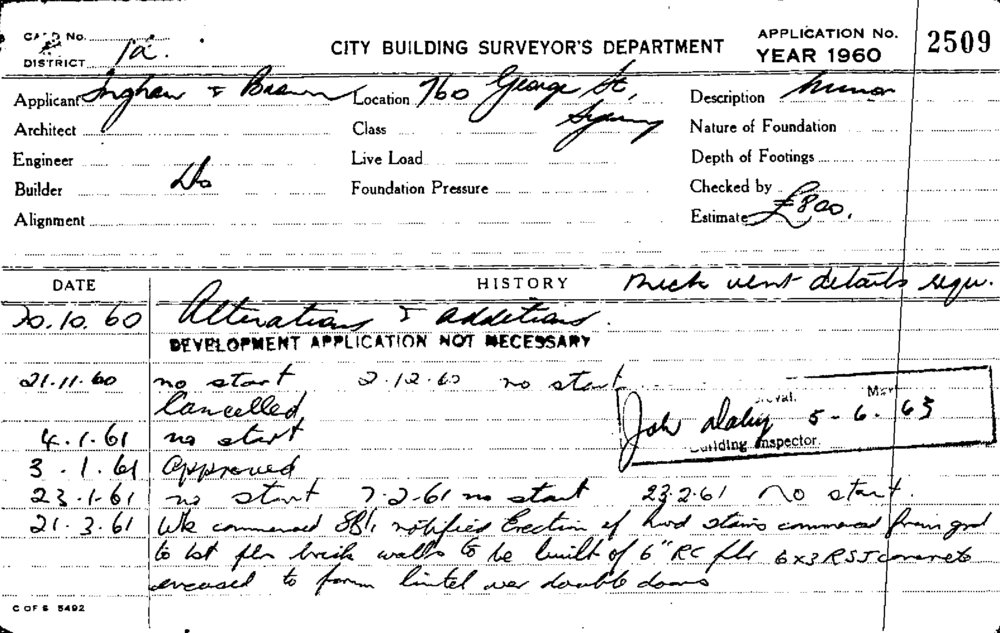 CARD No.
DISTRICT 1a.
CITY BUILDING SURVEYOR'S DEPARTMENT
APPLICATION No.
YEAR 1960
2509
Applicant Ingham & Brown Location 760 George St, Sydney Description Minor
Architect Class Nature of Foundation
Engineer Live Load Depth of Footings
Builder Do Foundation Pressure Checked by
Alignment Estimate £800.
DATE HISTORY Mech vent details requ.
20.10.60 Alterations & additions.
DEVELOPMENT APPLICATION NOT NECESSARY
21.11.60 no start 2.12.60 no start
Cancelled
4.1.61 no start
3.1.61 Approved
23.1.61 no start 7.2.61 no start 23.2.61 No start.
21.3.61 Wk commenced notified Erection of hwd stairs commenced from grd
to 1st flr brick walls to be built of 6" RC flr 6x3 RSJ concrete
encased to form lintel over double doors
Job 5-6-63
Building Inspector.
C OF S 5492